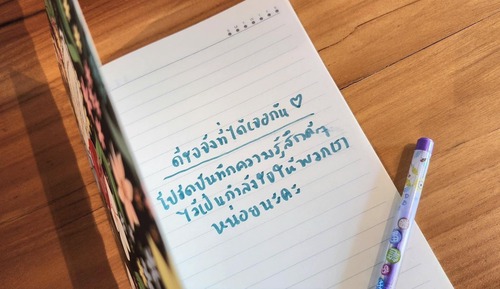 ดีใจจังที่ได้เจอกัน ♡
โปรดบันทึกความรู้สึกดีๆ
ไว้เป็นกำลังใจให้พวกเรา
หน่อยนะคะ